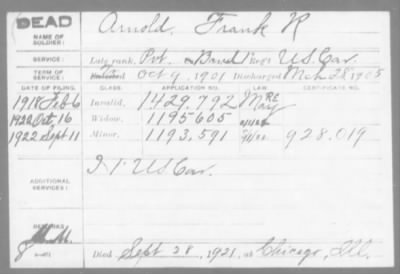 DEAD
NAME OF SOLDIER: Arnold, Frank R
SERVICE: Late rank, Pvt. Band, Reg't U.S. Cav.
TERM OF SERVICE: Enlisted Oct 9, 1901 Discharged Mch 28 1905
DATE OF FILING. CLASS. APPLICATION NO. LAW. CERTIFICATE NO.
1918 Feb 6 Invalid, 1429.792
1922 Oct 16 Widow, 1195605
1922 Sept 11 Minor, 1193,591 928.019
ADDITIONAL SERVICES: U.S. Cav.
REMARKS:
Died Sept 28, 1921, at Chicago, Ill.